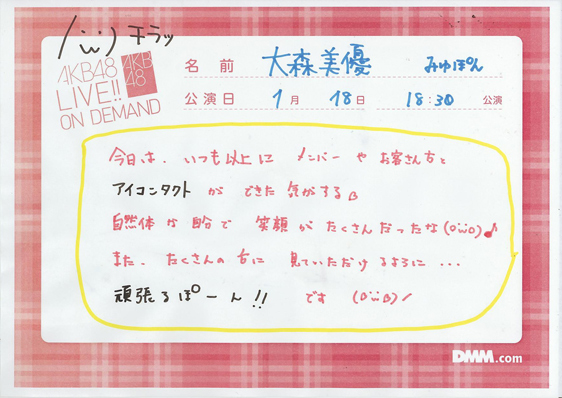 / ¨̮ ) チラッ
AKB48
LIVE!!
ON DEMAND
AKB
48
名前 大森美優 みゆぽん
公演日 1月 18日 18:30 公演
今日は、いつも以上に メンバーや お客さん方と
アイコンタクトが できた 気がするβ
自然体な自分で 笑顔が たくさんだったな(o¨o)♪
また、たくさんの方に 見ていただけるように...
頑張るぽーん!! です (o¨β)/
DMM.com